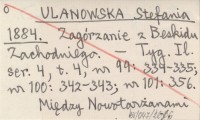 o
ULANOWSKA Stefania
1884. Zagórzanie z Beskidu
Zachodniego. — Tyg. Il.
ser. 4, t. 4, nr 99: 334-335;
nr 100: 342-343; nr 101: 356.
Między Nowotarżanami